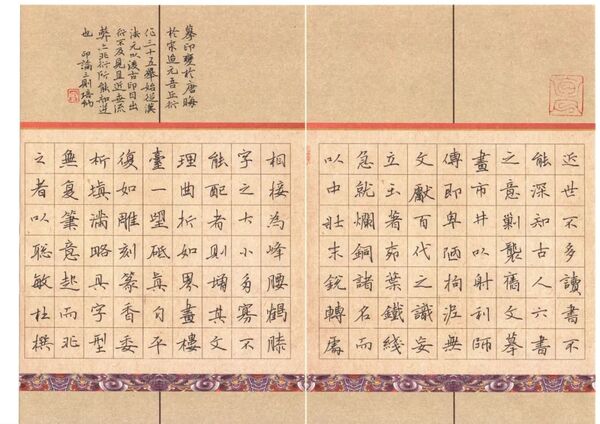 摹印盛於唐晦
於宋迨元吾丘衍
作三十五舉始從漢
法元以後古印日出
衍不及見且近世流
弊亦非衍所能知逆
也 印論三則
近世不多讀書不
能深知古人六書
之意剿襲舊文摹
畫市井以射利師
傳即卑陋拘泥無
文獻百代之識妄
立玉著茆葉鐵綫
急就爛銅諸名而
以中壯末銳轉處
相接為峰腰鶴膝
字之大小多寡不
能配者則補其文
理曲折如界畫樓
臺一望砥真自平
復如雕刻篆香委
析填滿略具字型
無复筆意起而非
之者以聰敏杜撰